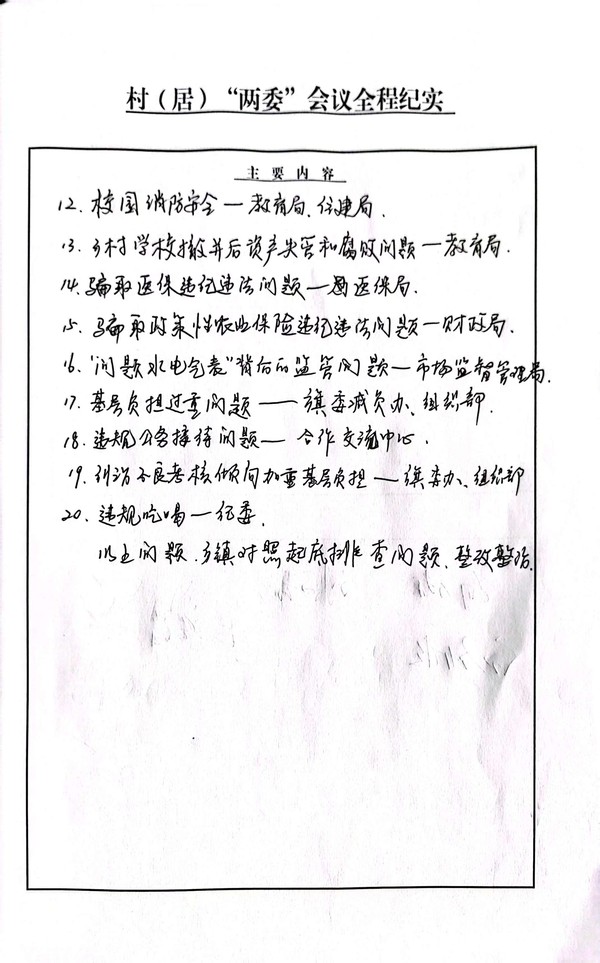 村（居）“两委”会议全程纪实
主要内容
12. 校园消防安全—教育局、住建局.
13. 乡村学校撤并后资产失管和腐败问题—教育局.
14. 骗取医保违纪违法问题—医保局.
15. 骗取政策性农业保险违纪违法问题—财政局.
16. “问题水电气表”背后的监管问题—市场监督管理局.
17. 基层负担过重问题——旗委减负办、组织部.
18. 违规公务接待问题—合作交流中心.
19. 纠治不良考核倾向加重基层负担—旗委办、组织部
20. 违规吃喝—纪委.
以上问题、乡镇对照起底排查问题、整改整治.